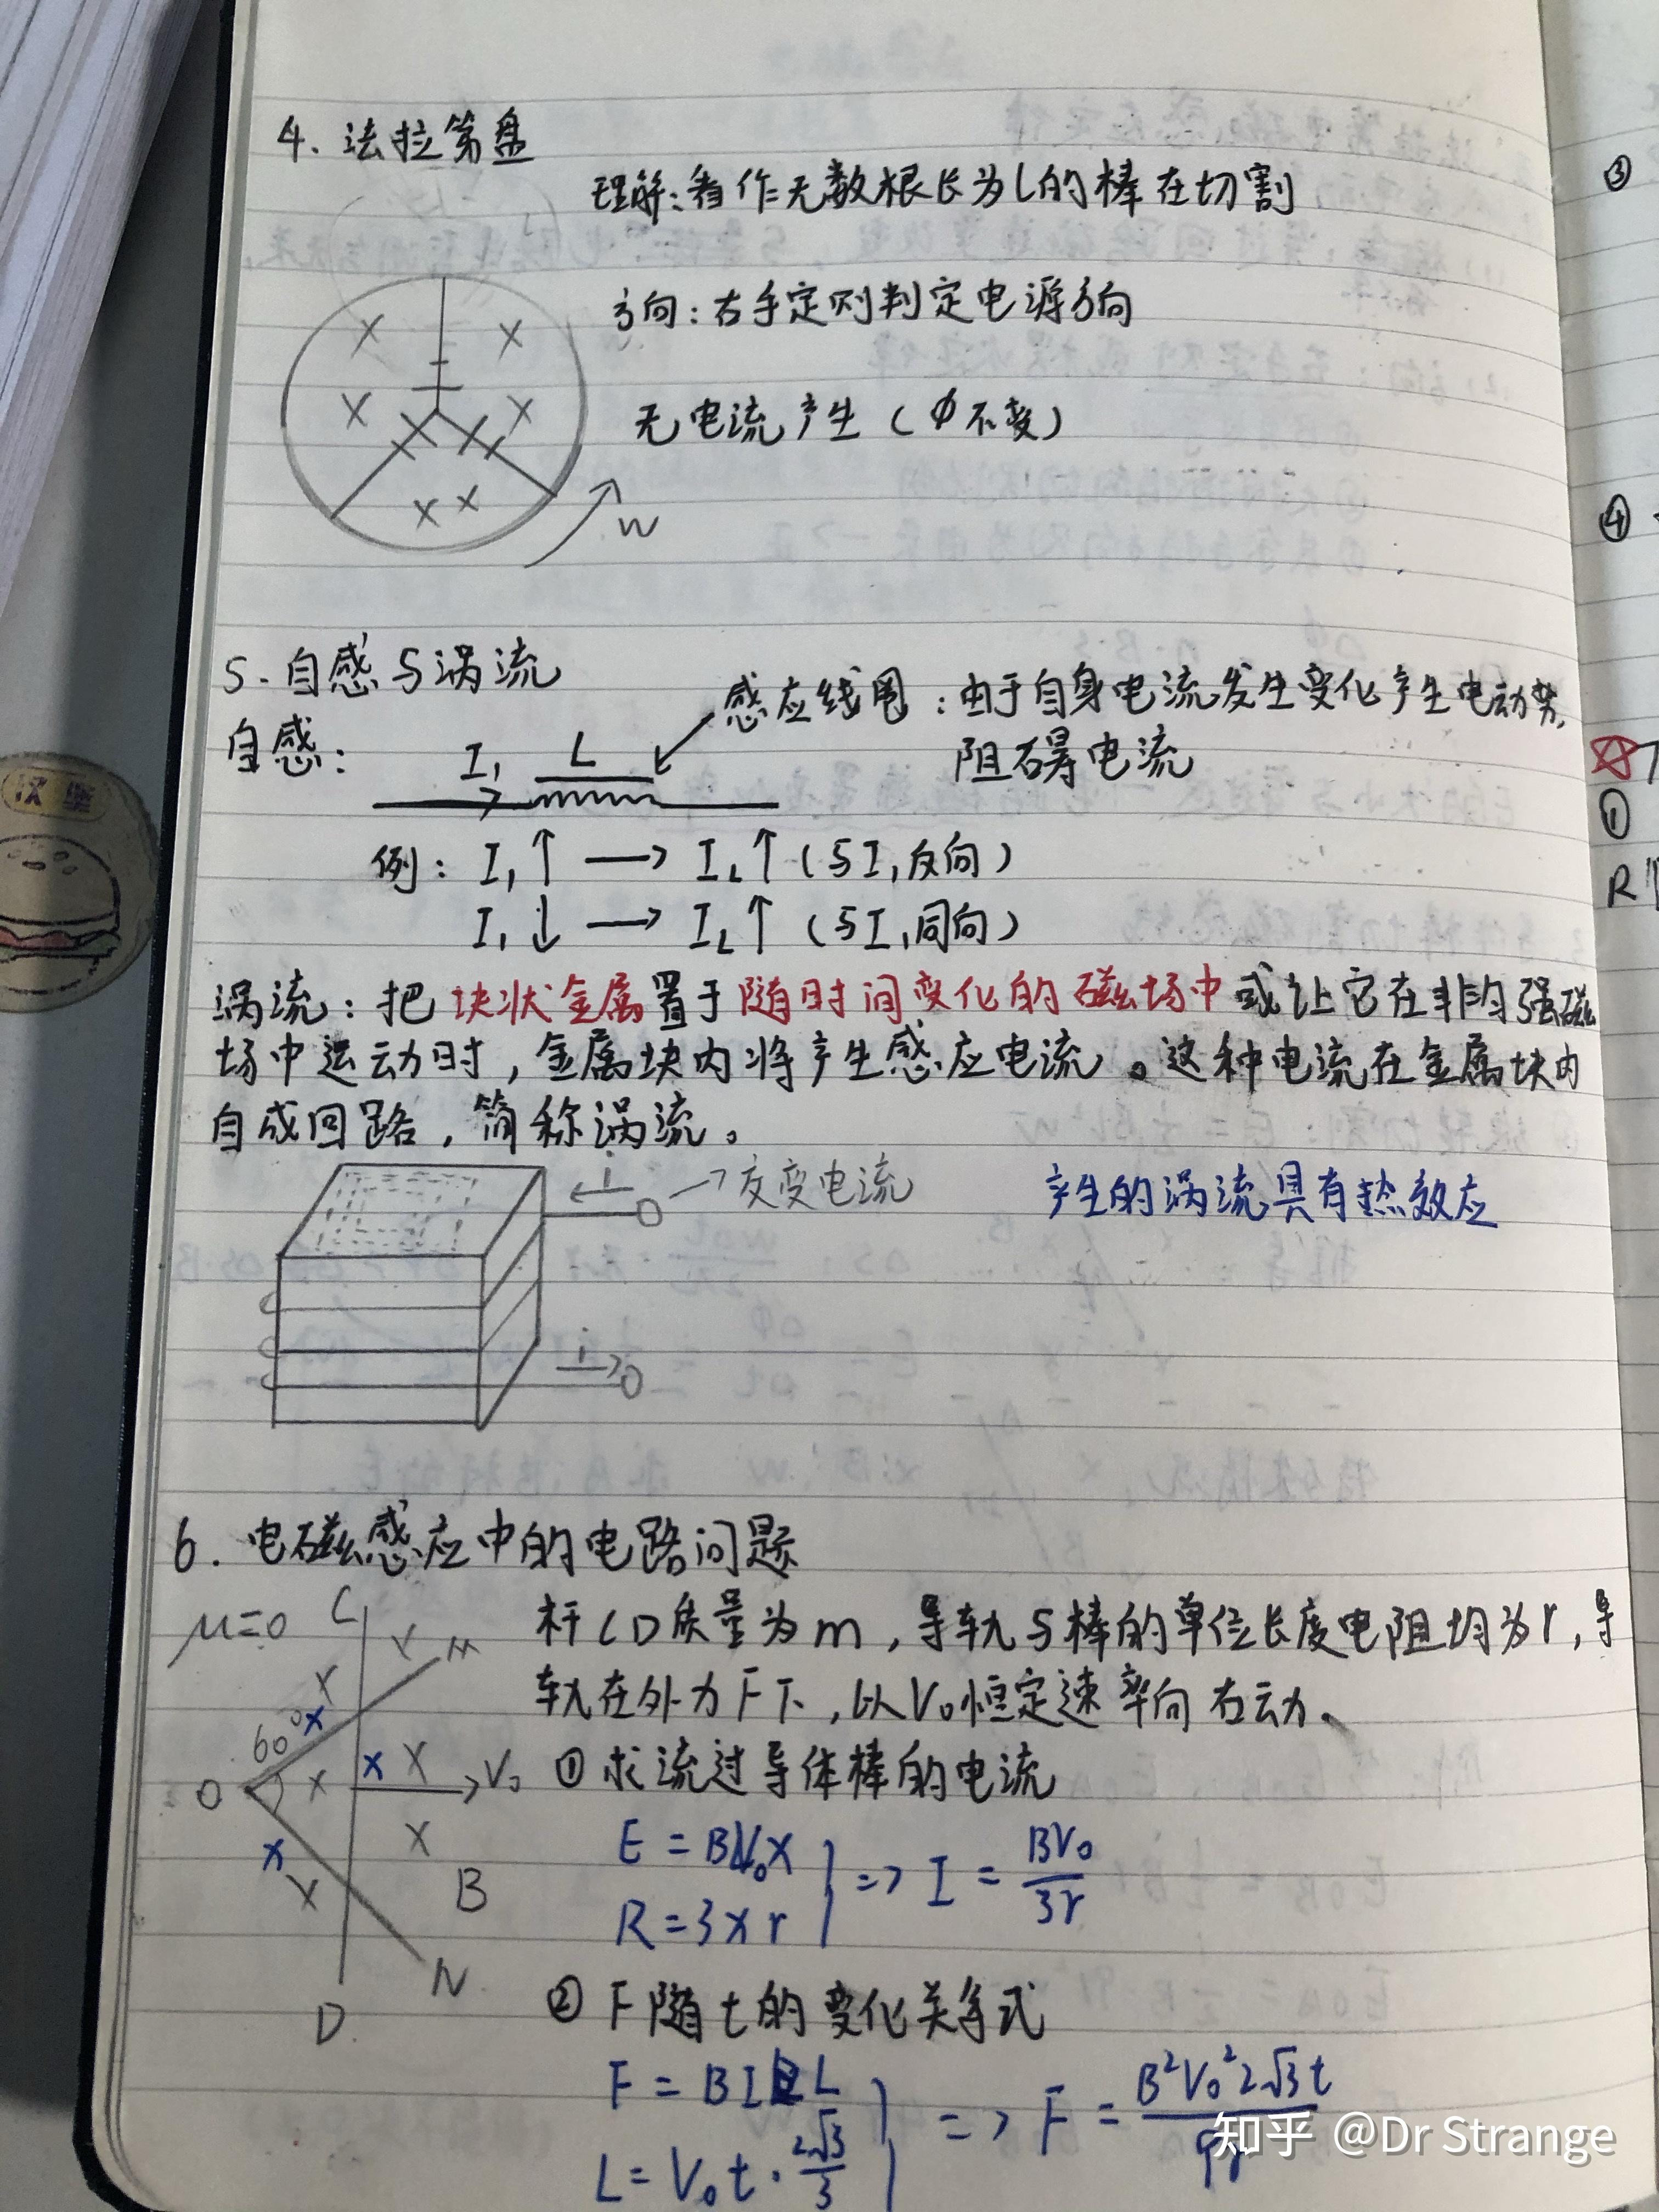 4. 法拉第盘
理解：看作无数根长为l的棒在切割
方向：右手定则判定电源方向
无电流产生（φ不变）
× ×
× ×
× ×
w
5. 自感与涡流
感应线圈：由于自身电流发生变化产生电动势，
自感：
I₁ L
阻碍电流
例：I₁↑ → I_L↑（与I₁反向）
I₁↓ → I_L↑（与I₁同向）
涡流：把块状金属置于随时间变化的磁场中或让它在非匀强磁
场中运动时，金属块内将产生感应电流。这种电流在金属块内
自成回路，简称涡流。
i →交变电流
产生的涡流具有热效应
i
6. 电磁感应中的电路问题
μ=0 C M
杆CD质量为m，导轨与棒的单位长度电阻均为r，导
轨在外力F下，以V₀恒定速率向右动。
60° x
O x V₀
①求流过导体棒的电流
x B
E = BV₀x
R = 3xr
=> I = BV₀/3r
D N
②F随t的变化关系式
F = BIL
L = V₀t·2√3/3
=> F = B²V₀²2√3t/9r
知乎 @Dr Strange
汉堡
③
④
①
R